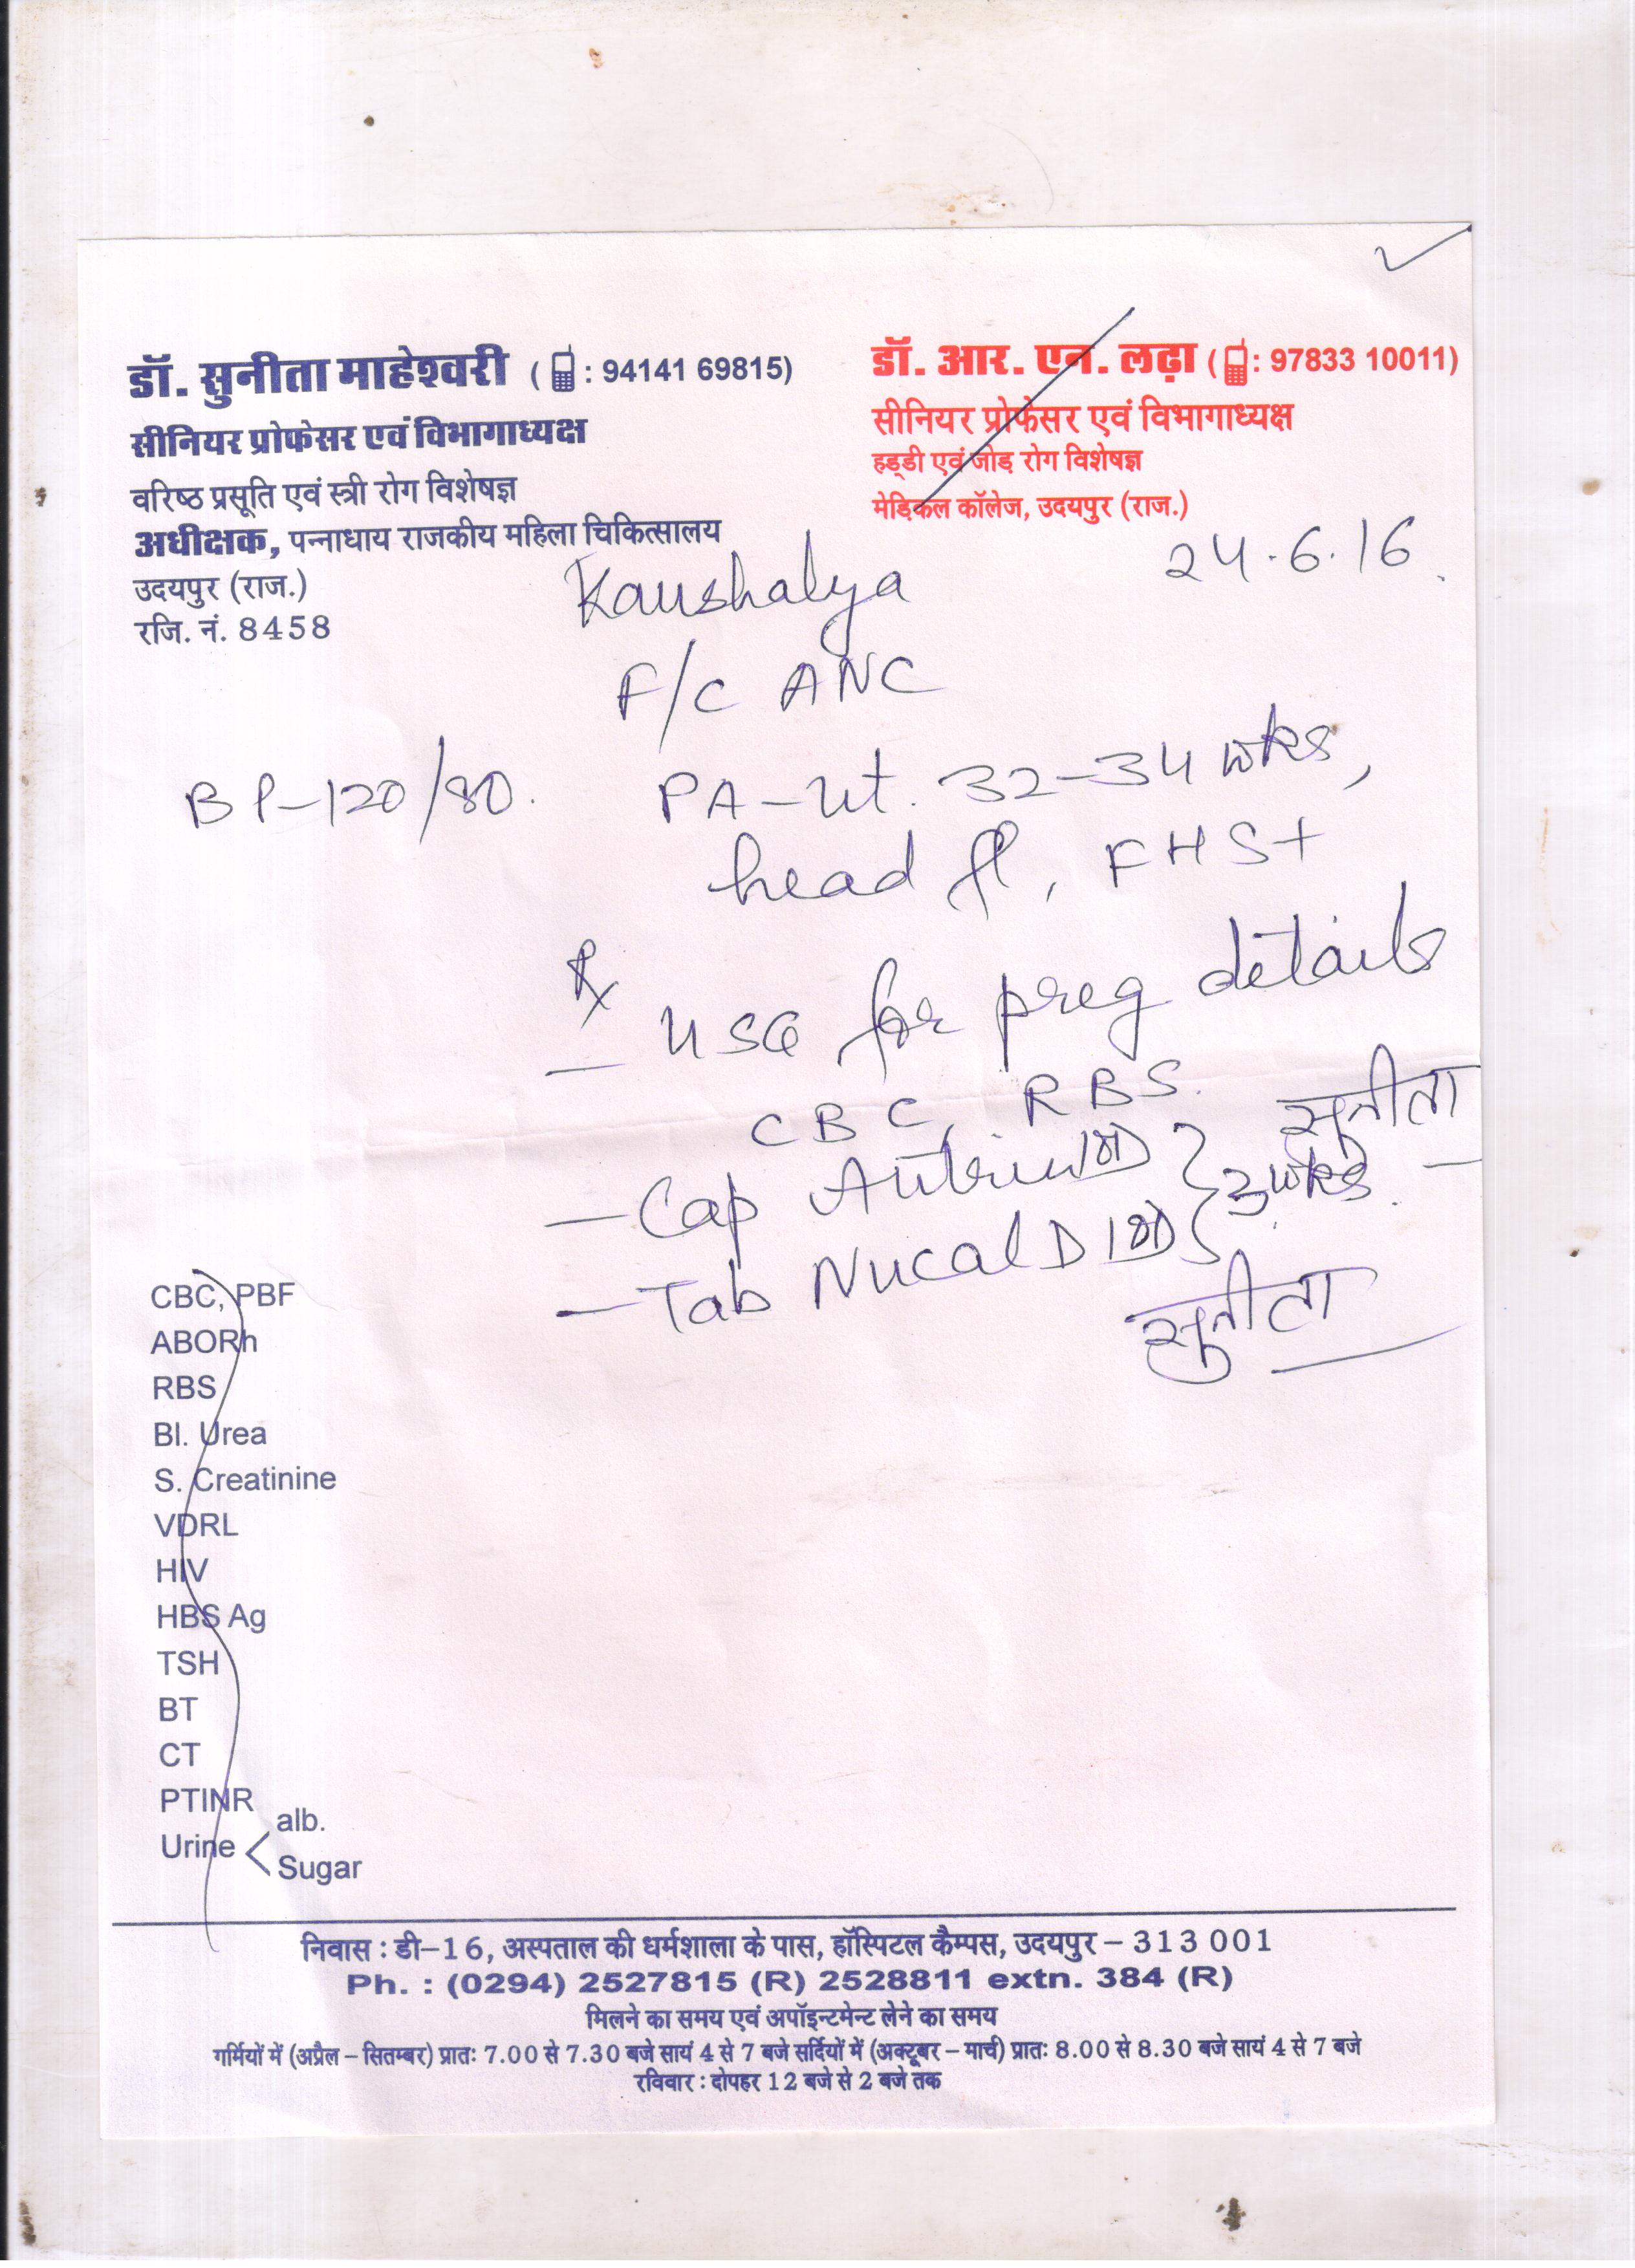 डॉ. सुनीता माहेश्वरी ( : 94141 69815)
सीनियर प्रोफेसर एवं विभागाध्यक्ष
वरिष्ठ प्रसूति एवं स्त्री रोग विशेषज्ञ
अधीक्षक, पन्नाधाय राजकीय महिला चिकित्सालय
उदयपुर (राज.)
रजि. नं. 8458
डॉ. आर. एन. लढ़ा ( : 97833 10011)
सीनियर प्रोफेसर एवं विभागाध्यक्ष
हड्डी एवं जोड़ रोग विशेषज्ञ
मेडिकल कॉलेज, उदयपुर (राज.)
24.6.16
Kaushalya
F/C ANC
BP-120/80.
PA-Ut. 32-34 wks,
head fl, FHS+
Rx
- USG for preg details
CBC, RBS.
सुनीता
- Cap 1 OD } 3 wks.
- Tab Nucal D 1 OD
सुनीता
CBC, PBF
ABORh
RBS
Bl. Urea
S. Creatinine
VDRL
HIV
HBS Ag
TSH
BT
CT
PTINR
Urine < alb.
Sugar
निवास : डी-16, अस्पताल की धर्मशाला के पास, हॉस्पिटल कैम्पस, उदयपुर - 313 001
Ph. : (0294) 2527815 (R) 2528811 extn. 384 (R)
मिलने का समय एवं अपॉइन्टमेन्ट लेने का समय
गर्मियों में (अप्रैल - सितम्बर) प्रातः 7.00 से 7.30 बजे सायं 4 से 7 बजे सर्दियों में (अक्टूबर - मार्च) प्रातः 8.00 से 8.30 बजे सायं 4 से 7 बजे
रविवार : दोपहर 12 बजे से 2 बजे तक